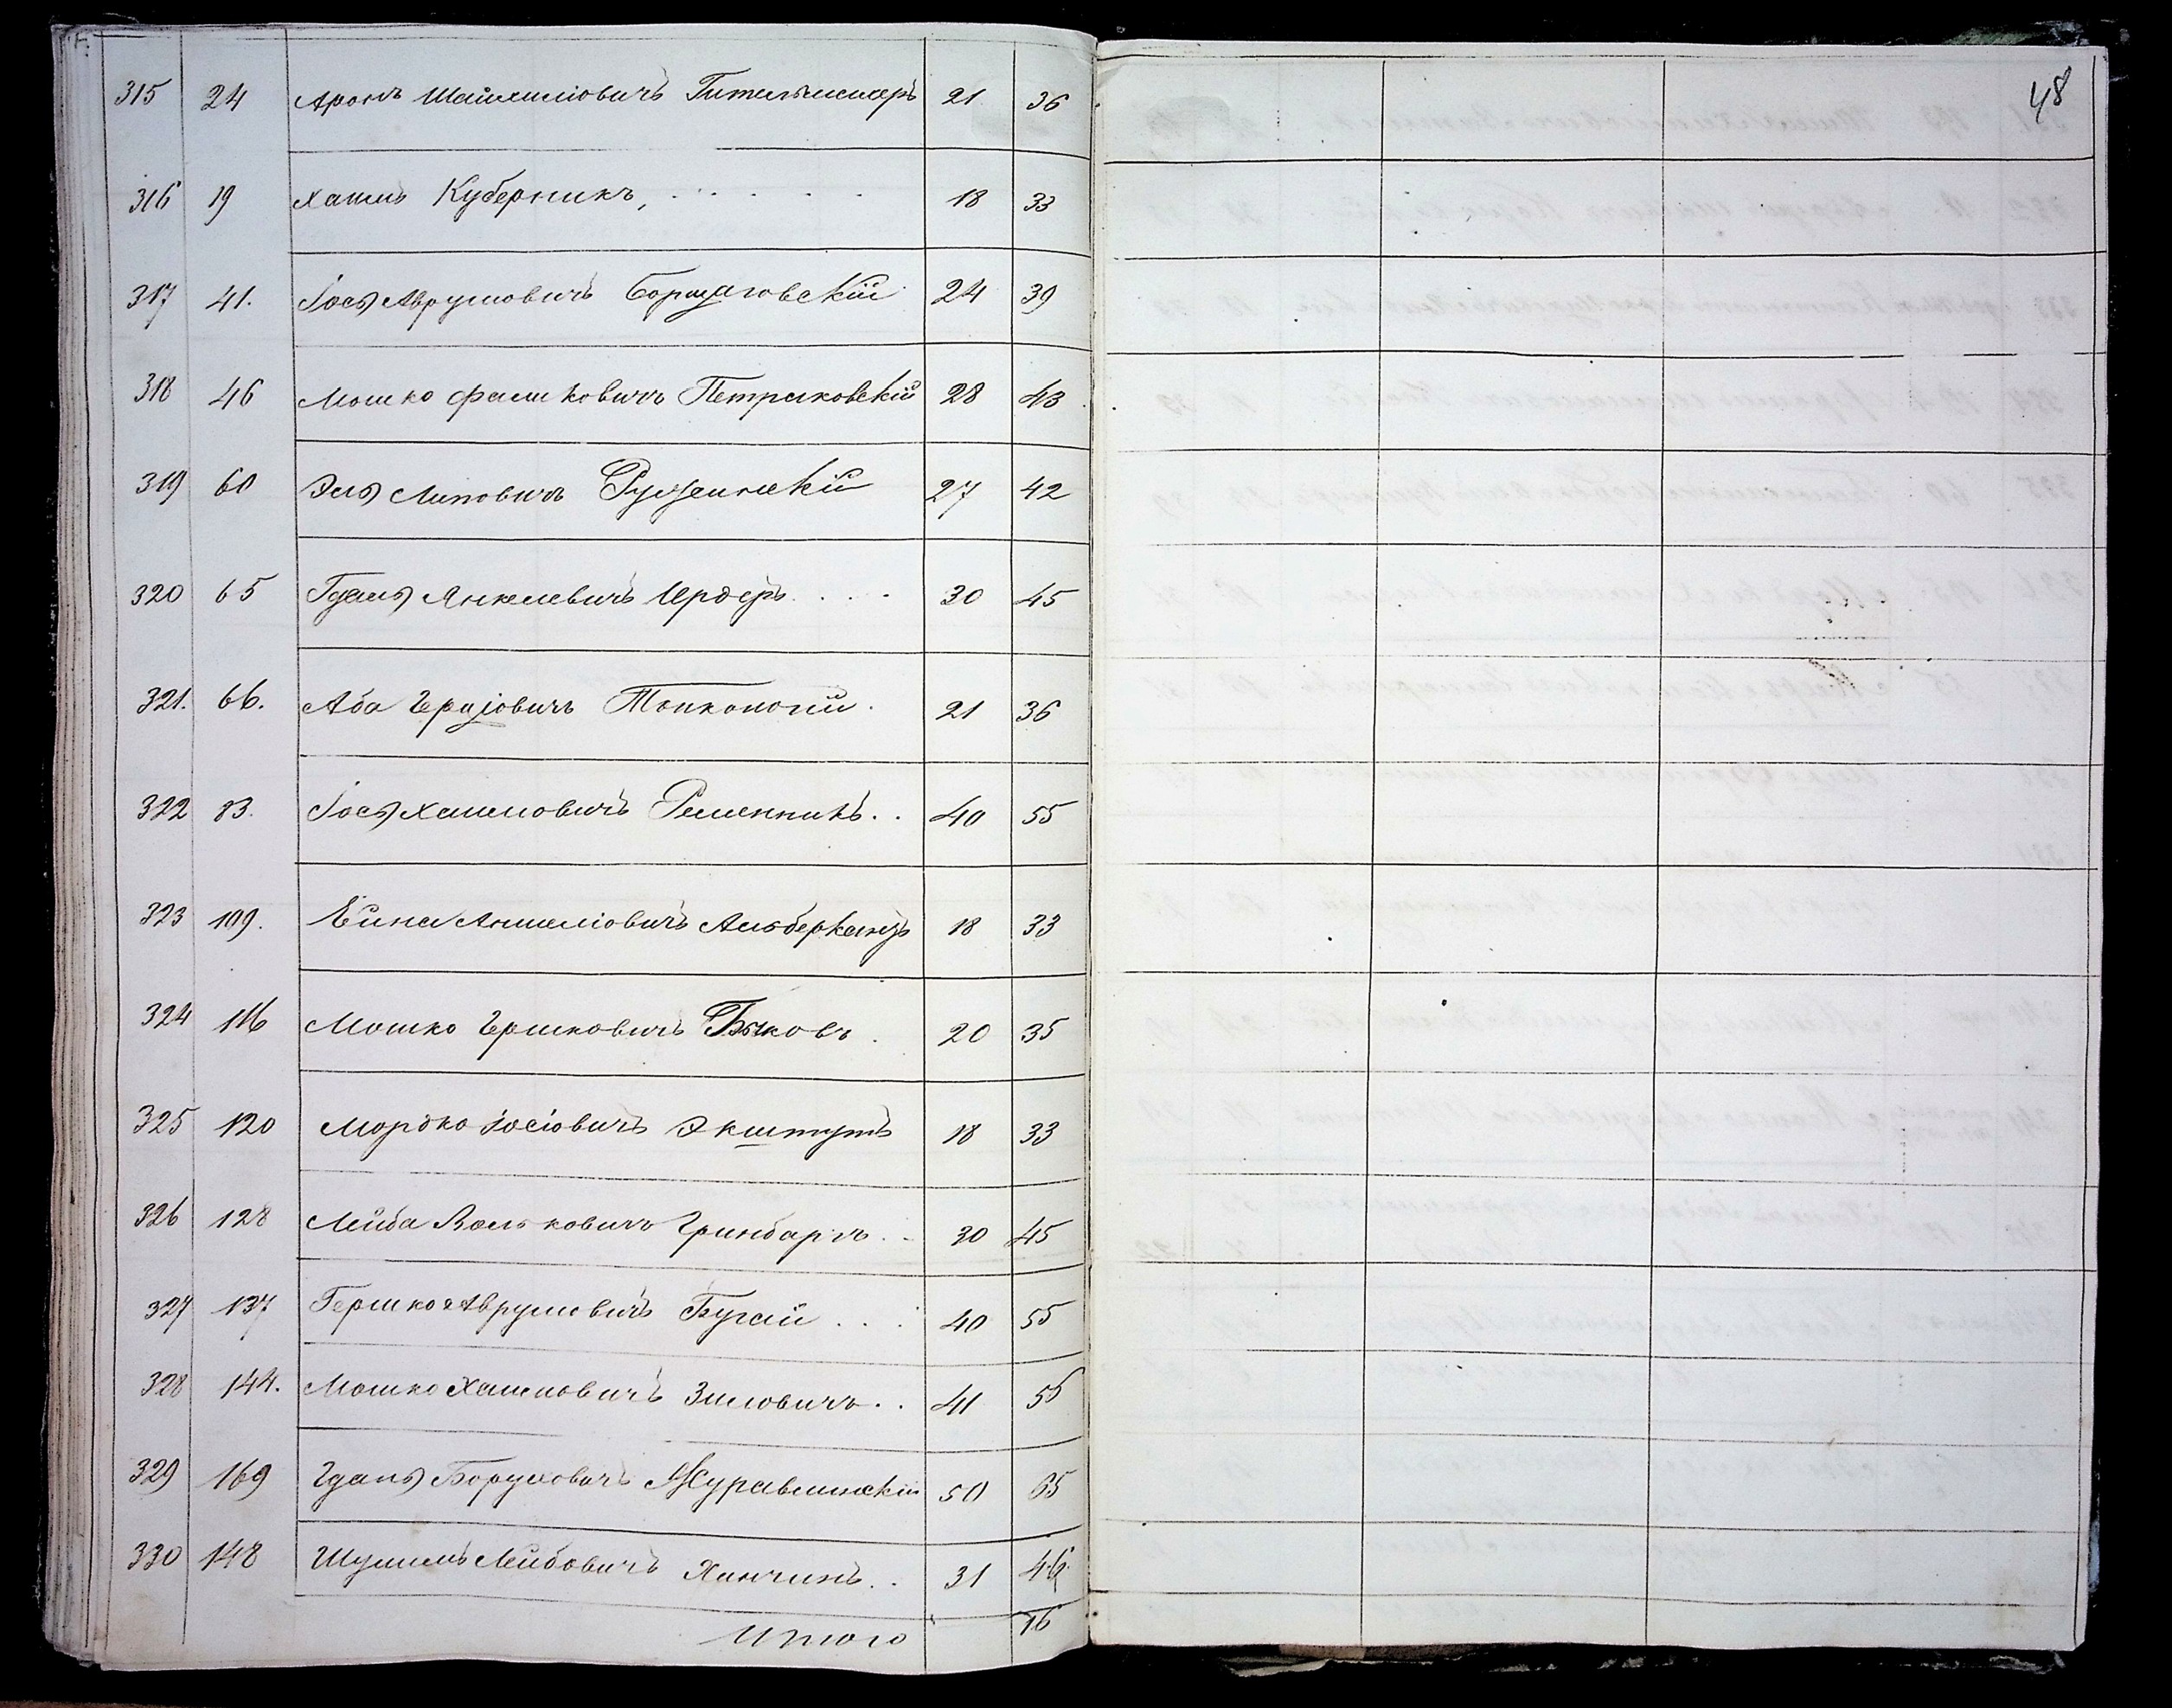 48
315 24 Аронъ Шаймиловичъ 21 36
316 19 Хаимъ Куберникъ, 18 33
317 41. Іось Аврумовичъ Борщаговскій 24 39
318 46 Мошко Фалшковичъ Петриковскій 28 43
319 60 Эль Липовичъ Ружинскій 27 42
320 65 Гдаль Янкелевичъ Ирдеръ 30 45
321. 66. Аба Тонконогій 21 36
322 83. Іось Хаимовичъ Ременникъ 40 55
323 109. Ейна Аншеліовичъ Альберкантъ 18 33
324 116 Мошко Гершковичъ Быковъ 20 35
325 120 Мордко Іосіовичъ Экштутъ 18 33
326 128 Лейба Вольковичъ Гринбаргъ 30 45
327 137 Гершко Аврумовичъ Бугай 40 55
328 144. Мошко Хаимовичъ Зиловичъ 41 55
329 169 Гдаль Боруховичъ Журавлинскій 50 65
330 148 Шулимъ Лейбовичъ Ханчинъ 31 46
Итого 16